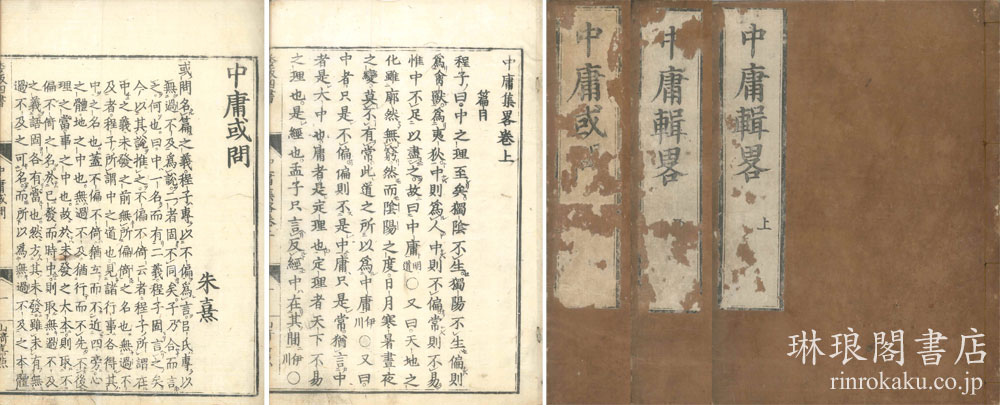 中庸或問
朱熹
或問名篇之義程子專以不偏爲言呂氏專以
無過不及爲說二者固不同矣子乃合而言
之何也曰中一名而有二義程子固言之矣
今以其說推之不偏不倚云者程子所謂在
中之義未發之前無所偏倚之名也無過不
及者程子所謂中之道也見諸行事各得其
中之名也蓋不偏不倚猶立而不近四旁心
之體地之中也無過不及猶行而不先不後
理之當事之中也故於未發之大本則取不
偏不倚之名於已發而時中則取無過不及
之義語固各有當也然方其未發雖未有無
過不及之可名而所以爲無過不及之本體
中庸集畧卷上
篇目
程子曰中之理至矣獨陰不生獨陽不生偏則
爲禽獸爲夷狄中則爲人中則不偏常則不易
惟中不足以盡之故曰中庸明道〇又曰天地之
化雖廓然無窮然而陰陽之度日月寒暑晝夜
之變莫不有常此道之所以爲中庸伊川〇又曰
中者只是不偏偏則不是中庸只是常猶言中
者是大中也庸者是定理也定理者天下不易
之理也是經也孟子只言反經中在其間伊川〇
中庸輯畧
上
中庸輯畧
中庸或
琳琅閣書店
rinrokaku.co.jp